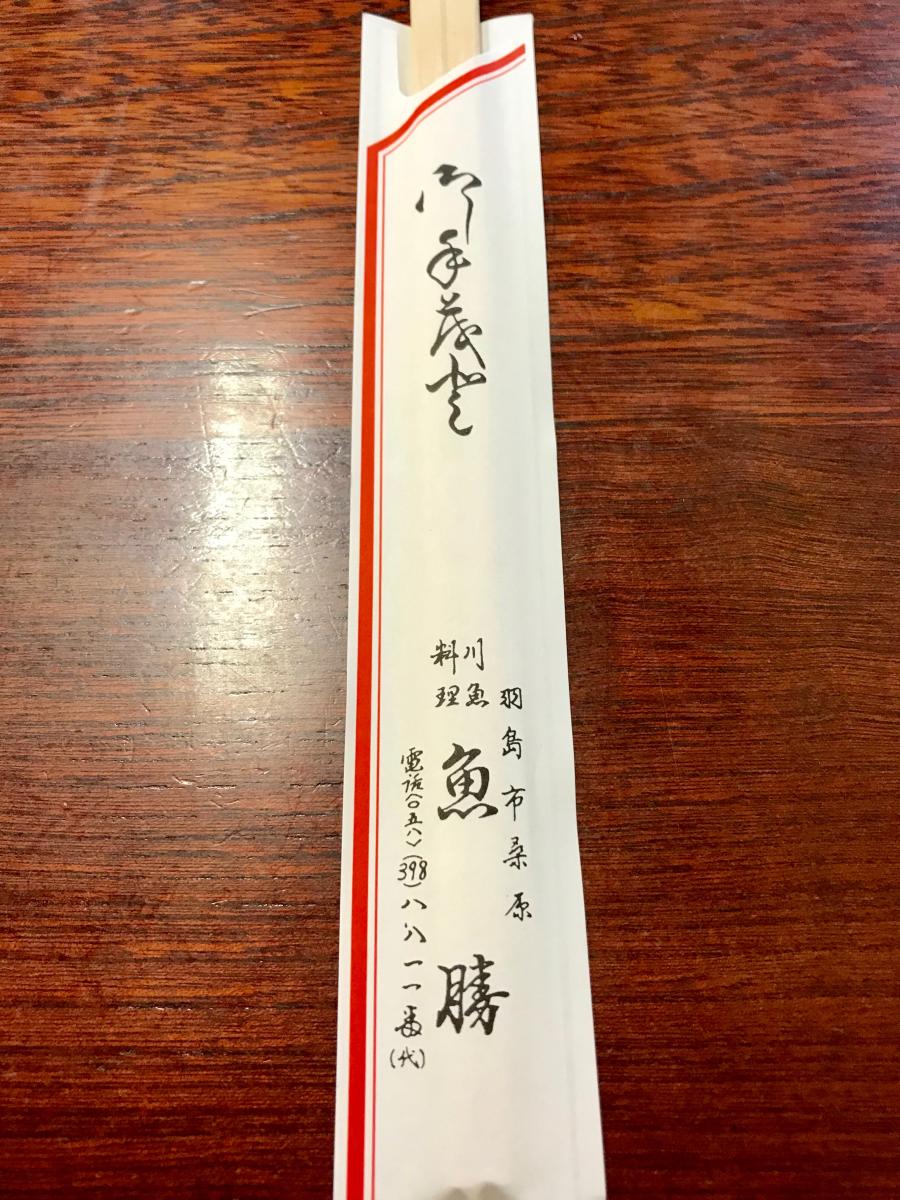 御手茂登
羽島市桑原
川魚
料理
魚勝
電話(〇五八)(398)八八一一番(代)